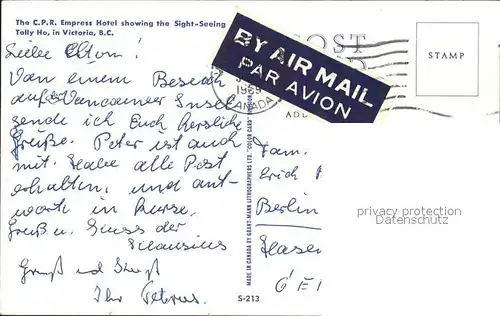 The C.P.R. Empress Hotel showing the Sight-Seeing
Tally Ho, in Victoria, B.C.
Liebe Eltern!
Von einem Besuch
auf Vancouver Insel
sende ich Euch herzliche
Grüße. Peter ist auch
mit. Habe alle Post
erhalten, und ant-
worte in Kürze.
Gruß u. Kuss der
Gruß und Kuß
Ihr Petrus.
BY AIR MAIL
PAR AVION
POST
1969
CANADA
ADD
STAMP
Fam.
Erich
Berlin
privacy protection
Datenschutz
MADE IN CANADA BY GRANT-MANN LITHOGRAPHERS LTD. "COLOR CARD"
S-213